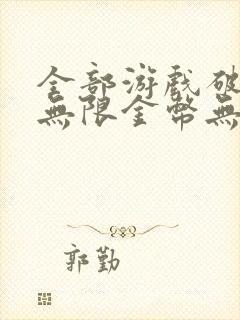 全部游戏破
無限金幣無
郭勤